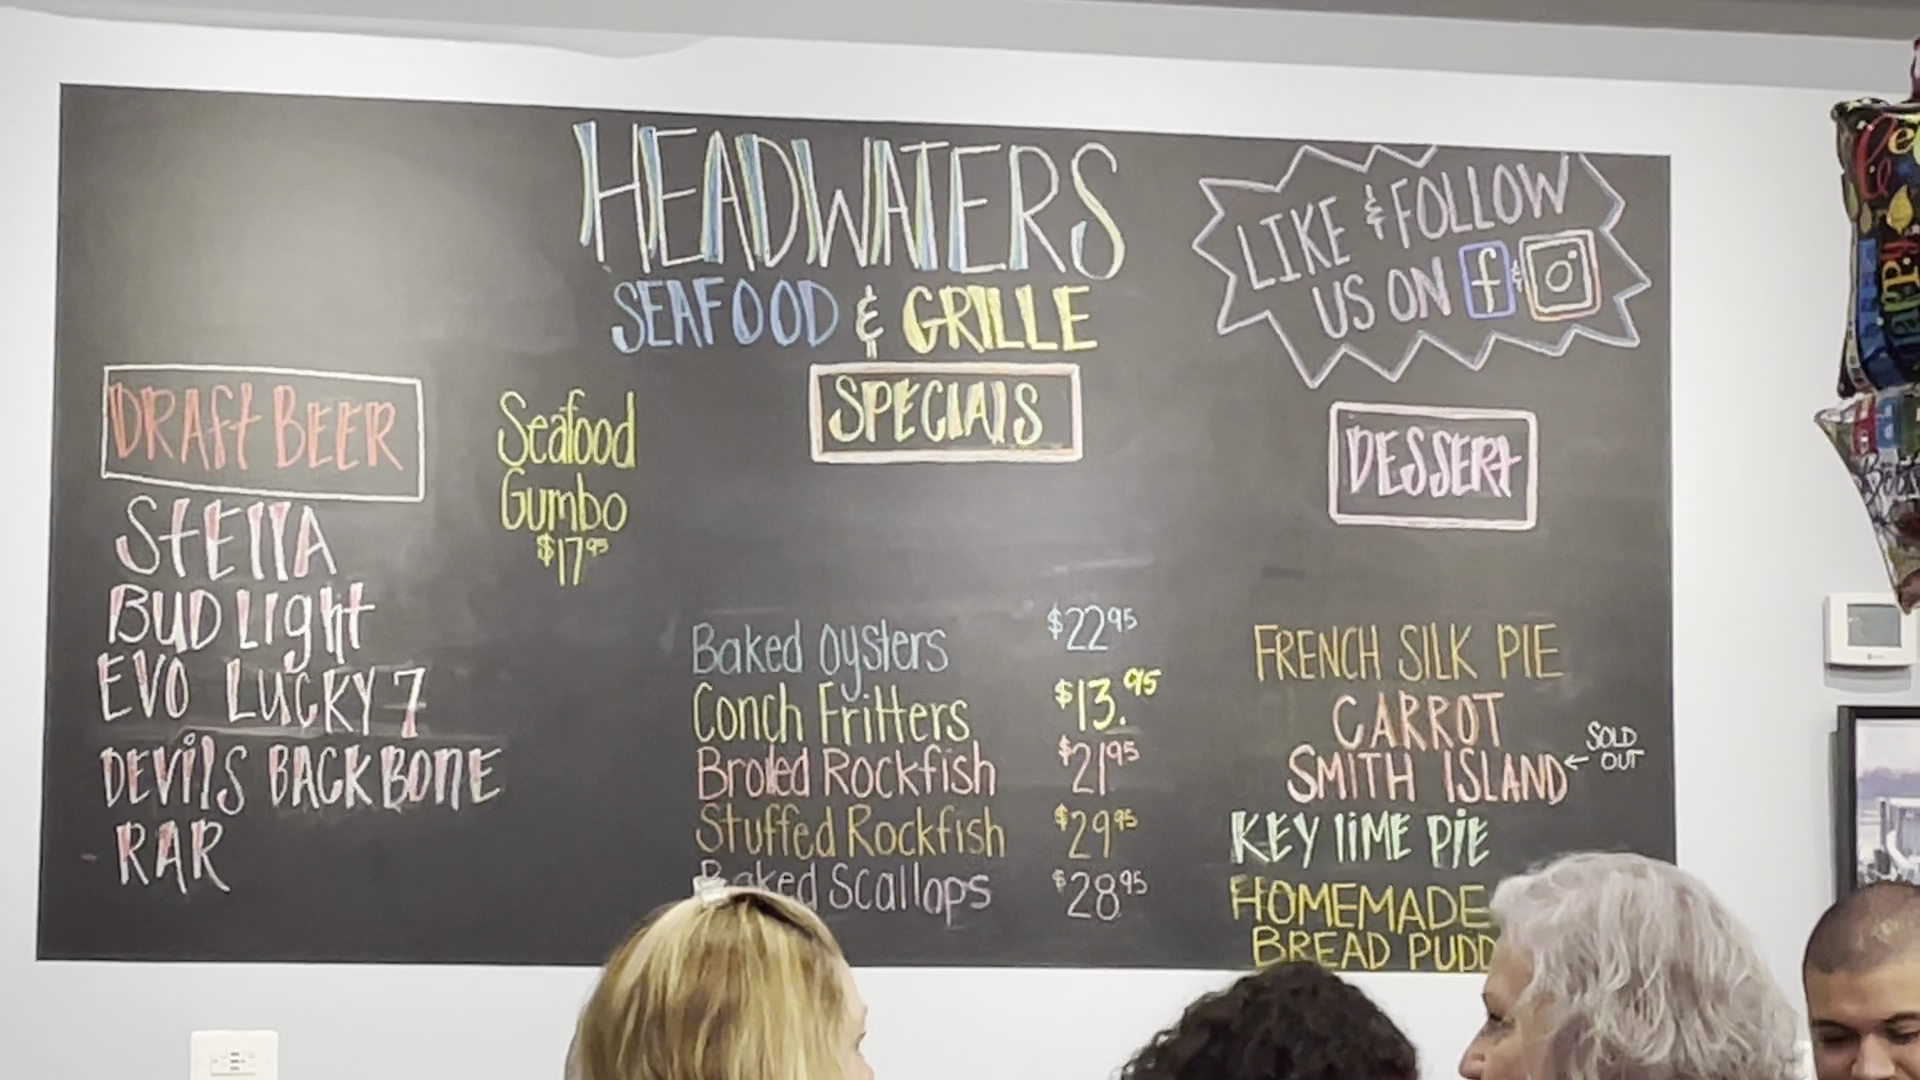 HEADWATERS
SEAFOOD & GRILLE
LIKE & FOLLOW
US ON f &
SPECIALS
DRAft BEER
StEllA
BUD LIght
EVO LUCKY 7
DEVilS BACKBONE
RAR
Seafood
Gumbo
$17.95
Baked Oysters $22.95
Conch Fritters $13.95
Broiled Rockfish $21.95
Stuffed Rockfish $29.95
Baked Scallops $28.95
DESSERt
FRENCH SILK PIE
CARROT
SMITH ISLAND ← SOLD OUT
KEY lIME PIE
HOMEMADE
BREAD PUDD